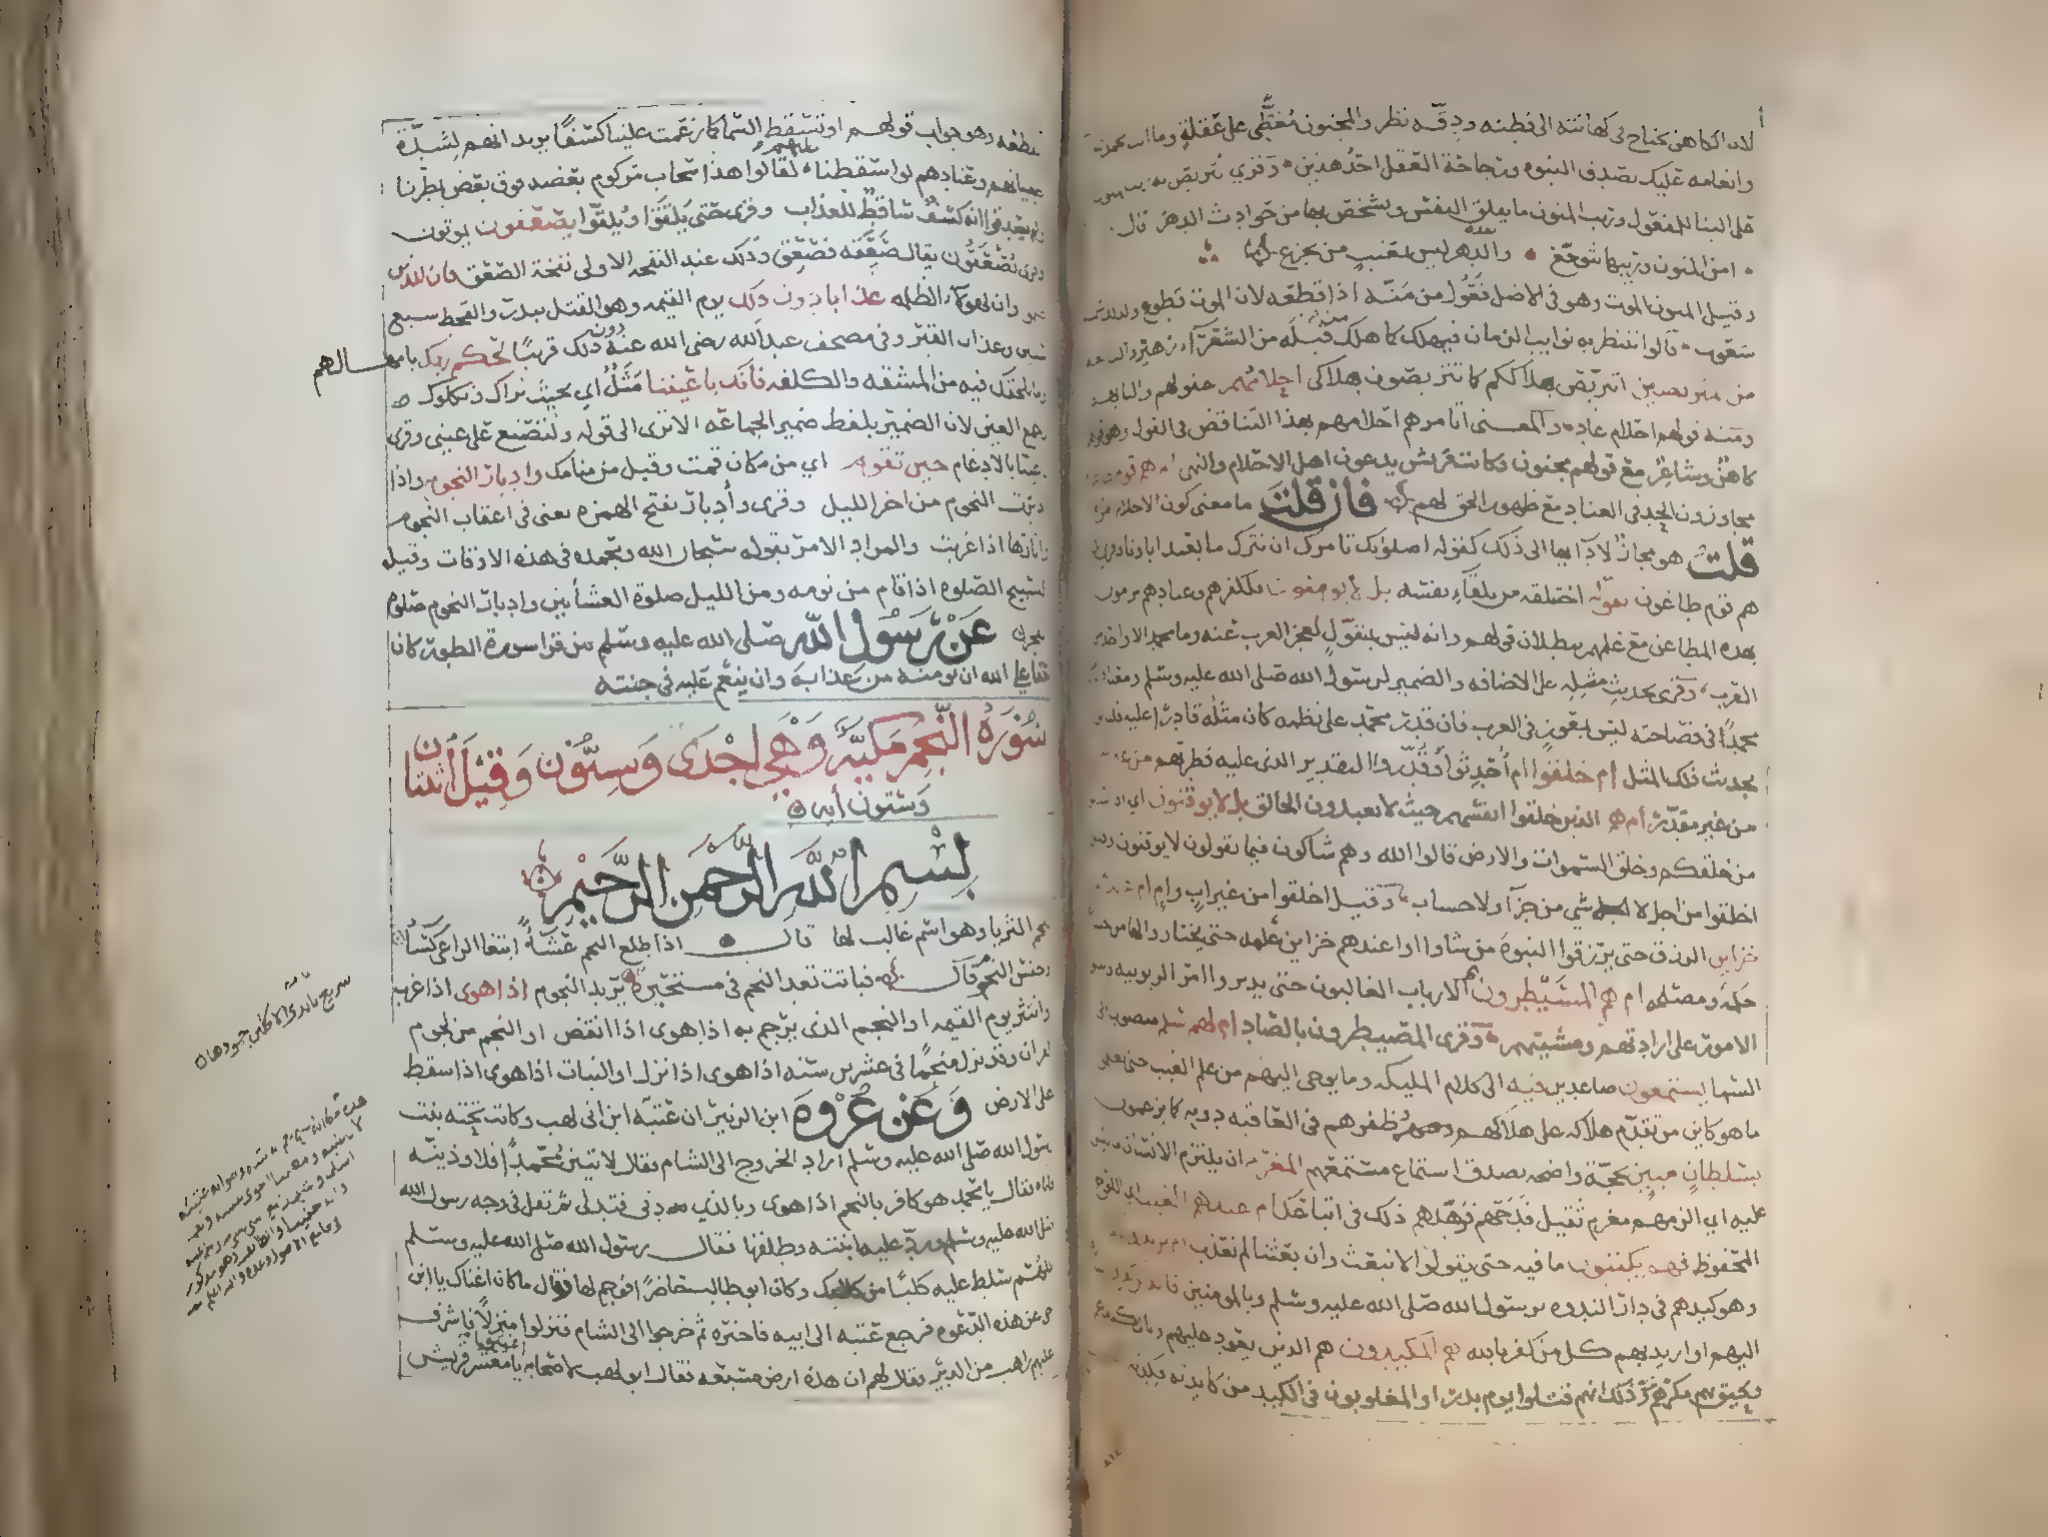 لان الكاهن يحتاج في كهانته الى فطنه ودقه نظر والمجنون مغطى على عقله وما انت بحمد
وانعامه عليك بصدق النبوه ورجاحة العقل احد هذين وقرى يتربص به
على البنا للمفعول وريب المنون ما يقلق النفس ويشخص بها من حوادث الدهر قال
امن المنون وريبها تتوجع والدهر ليس بمعتب من يجزع
وقيل المنون الموت وهو في الاصل فعول من منه اذا قطعه لان الموت قطوع ولذلك
شعوب قالوا ننتظر به نوايب الزمان فيهلك كما هلك من قبله من الشعرآء زهير والنابغه
من المتربصين اتربص هلاككم كما تتربصون هلاكي احلامهم عقولهم والبابهم
ومنه قولهم احلام عاد والمعنى اتامرهم احلامهم بهذا التناقض في القول وهو قولهم
كاهن وشاعر مع قولهم مجنون وكانت قريش يدعون اهل الاحلام والنهى ام هم قوم
مجاوزون الحد في العناد مع ظهور الحق لهم فان قلت ما معنى كون الاحلام
قلت هو مجاز لادآيها الى ذلك كقوله اصلوتك تامرك ان نترك ما يعبد اباونا وقرى
هم قوم طاغون تقوله اختلقه من تلقآء نفسه بل لا يومنون فلكفرهم وعنادهم يرمون
بهذه المطاعن مع علمهم ببطلان قولهم وانه ليس بمتقول لعجز العرب عنه وما محمد الا واحد
العرب وقرى بحديث مثله على الاضافه والضمير لرسول الله صلى الله عليه وسلم ومعناه
محمدا في فصاحته ليس بمعوز في العرب فان قدر محمد على نظمه كان مثله قادرا عليه
بحديث ذلك المثل ام خلقوا ام احدثوا وقدروا التقدير الذي عليه فطرتهم من
من غير مقدر ام هم الذين خلقوا انفسهم حيث لا يعبدون الخالق بل لا يوقنون اي اذا
من خلقكم وخلق السموات والارض قالوا الله وهم شاكون فيما يقولون لا يوقنون
اخلقوا من اجل لا شي من جزآء ولا حساب وقيل اخلقوا من غير اب وام ام
خزاين الرزق حتى يرزقوا النبوة من شاوا اوا عندهم خزاين علمه حتى يختاروا لها من
حكمه ومصلحه ام هم المسيطرون الارباب الغالبون حتى يدبروا امر الربوبيه
الامور على ارادتهم ومشيتهم وقرى المصيطرون بالصاد ام لهم سلم منصوب الى
السما يستمعون صاعدين فيه الى كلام المليكه وما يوحى اليهم من علم الغيب حتى يعلموا
ما هو كاين من تقدم هلاكه على هلاكهم وظفرهم في العاقبه دونه كما يزعمون
بسلطان مبين بحجة واضحه بصدق استماع مستمعهم المغرم ان يلتزم الانسان ما ليس
عليه اي الزمهم مغرم ثقيل فدحهم فزهدهم ذلك في اتباعك ام عندهم الغيب اي اللوح
المحفوظ فهم يكتبون ما فيه حتى يقولوا لا نبعث وان بعثنا لم نعذب ام يريدون
وهو كيدهم في دار الندوه برسول الله صلى الله عليه وسلم وبالمومنين فالذين
اليهم او اريد بهم كل من كفر بالله هم المكيدون هم الذين يعود عليهم وبال كيدهم
ويحيق بهم مكرهم وذلك انهم قتلوا يوم بدر او المغلوبون في الكيد من كايدته فكدته
قطعه وهو جواب قولهم او تسقط السما كما زعمت علينا كسفا يريد انهم لشدة
طغيانهم وعنادهم لو اسقطنا عليهم لقالوا هذا سحاب مركوم بعضه فوق بعض يمطرنا
ولم يصدقوا انه كسف ساقط للعذاب وقرى حتى يلقوا ويلقوا يصعقون يموتون
وقرى يصعقون يقال صعقه فصعق وذلك عند النفخه الاولى نفخة الصعق وان للذين
ظلموا وان لهولآء الظلمه عذابا دون ذلك يوم القيمه وهو القتل ببدر والقحط سبع
سنين وعذاب القبر وفي مصحف عبدالله رضي الله عنه دون ذلك قريبا لحكم ربك بامهالهم
وما يلحقك فيه من المشقه والكلفه فانك باعيننا مثل اي بحيث نراك ونكلوك
وجمع العين لان الضمير بلفظ ضمير الجماعه الا ترى الى قوله ولتصنع على عيني وقرى
باعينا بالادغام حين تقوم اي من مكان قمت وقيل من منامك وادبار النجوم واذا
ادبرت النجوم من اخر الليل وقرى وادبار بفتح الهمزه يعنى في اعقاب النجوم
واثارها اذا غربت والمراد الامر بقوله سبحان الله وبحمده في هذه الاوقات وقيل
التسبيح الصلوه اذا قام من نومه ومن الليل صلوة العشاين وادبار النجوم صلوه
الفجر عن رسول الله صلى الله عليه وسلم من قرا سورة الطور كان
حقا على الله ان يومنه من عذابه وان ينعم عليه في جنته
سورة النجم مكيه وهي احدى وستون وقيل اثنتان
وستون ايه
بسم الله الرحمن الرحيم
النجم الثريا وهو اسم غالب لها قال اذا طلع النجم عشآء ابتغا الراعي كسآء
وجنس النجوم قال فباتت تعد النجم في مستحيرة يريد النجوم اذا هوى اذا غرب
وانتثر يوم القيمه او النجم الذي يرجم به اذا هوى اذا انقض او النجم من نجوم
القران وقد نزل منجما في عشرين سنه اذا هوى اذا نزل او النبات اذا هوى اذا سقط
على الارض وعن عروة ابن الزبير ان عتبه ابن ابي لهب وكانت تحته بنت
رسول الله صلى الله عليه وسلم اراد الخروج الى الشام فقال لاتين محمدا فلاوذينه
فاتاه فقال يا محمد هو كافر بالنجم اذا هوى وبالذي دنى فتدلى ثم تفل في وجه رسول الله
صلى الله عليه وسلم ورد عليه ابنته وطلقها فقال رسول الله صلى الله عليه وسلم
اللهم سلط عليه كلبا من كلابك وكان ابو طالب حاضرا فوجم لها وقال ما كان اغناك يا ابن
اخي عن هذه الدعوه فرجع عتبه الى ابيه فاخبره ثم خرجوا الى الشام فنزلوا منزلا فاشرف
عليهم راهب من الدير فقال لهم ان هذه ارض مسبعه فقال ابو لهب لاصحابه اغيثونا يا معشر قريش